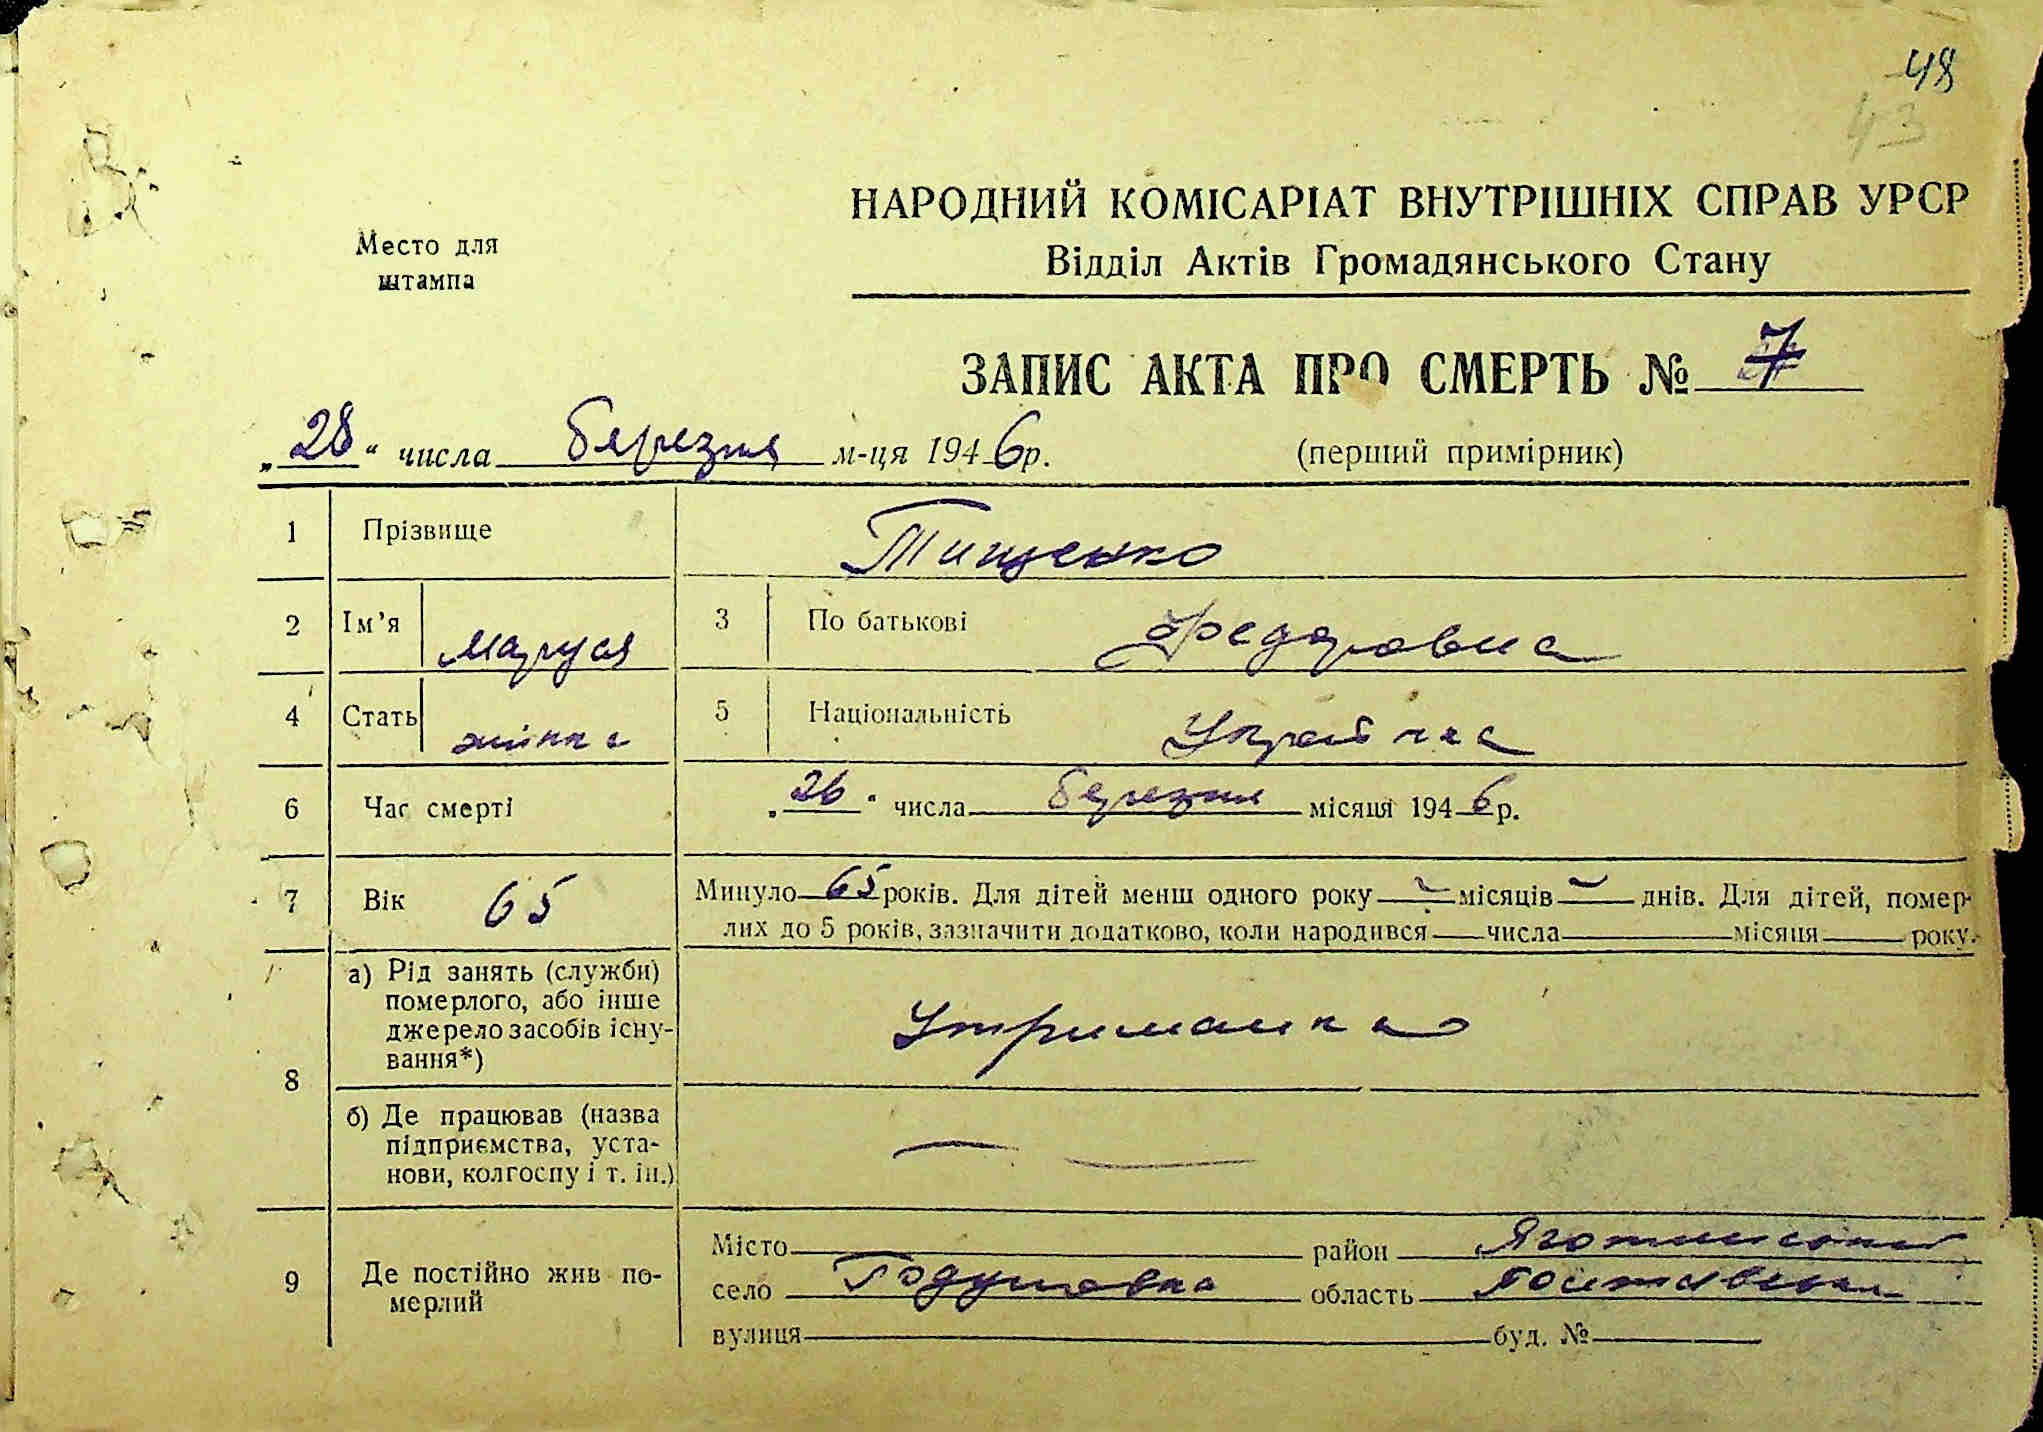 48
43
НАРОДНИЙ КОМІСАРІАТ ВНУТРІШНІХ СПРАВ УРСР
Место для
штампа
Відділ Актів Громадянського Стану
ЗАПИС АКТА ПРО СМЕРТЬ № 7
„28“ числа березня м-ця 1946р.
(перший примірник)
1 Прізвище Тищенко
2 Ім’я Маруся 3 По батькові Федоровна
4 Стать жінка 5 Національність Українка
6 Час смерті „26“ числа березня місяця 1946р.
7 Вік 65 Минуло 65 років. Для дітей менш одного року — місяців — днів. Для дітей, помер-
лих до 5 років, зазначити додатково, коли народився числа місяця року.
8 а) Рід занять (служби)
померлого, або інше
джерело засобів існу-
вання*)
Утриманка
б) Де працював (назва
підприємства, уста-
нови, колгоспу і т. ін.)
— —
9 Де постійно жив по-
мерлий
Місто район Яготинский
село область Полтавська
вулиця буд. №